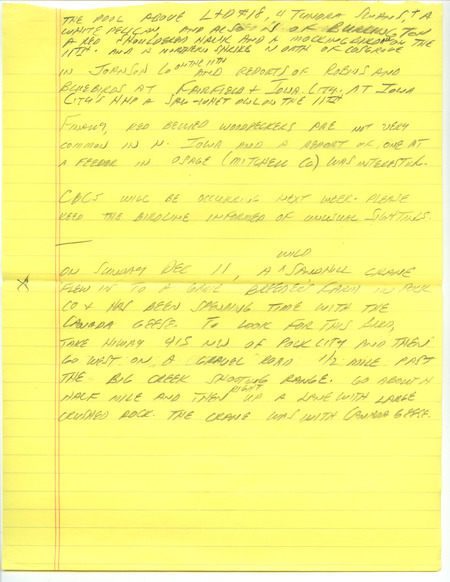 THE POOL ABOVE L+D #18, 4 TUNDRA SWANS, + A
WHITE PELICAN, AND ALSO IN S OF BURLINGTON
A RED SHOULDERED HAWK AND A MOCKINGBIRD ON THE
11TH. AND A NORTHERN SHRIKE NORTH OF COSGROVE
IN JOHNSON CO ON THE 11TH AND REPORTS OF ROBINS AND
BLUEBIRDS AT FAIRFIELD + IOWA CITY. AT IOWA
CITY'S HAD A SAW-WHET OWL ON THE 11TH
FINALLY, RED BELLIED WOODPECKERS ARE NOT VERY
COMMON IN N. IOWA AND A REPORT OF ONE AT
A FEEDER IN OSAGE (MITCHELL CO) WAS INTERESTING.
CBCS WILL BE OCCURRING NEXT WEEK. PLEASE
KEEP THE BIRDLINE INFORMED OF UNUSUAL SIGHTINGS.
ON SUNDAY DEC 11, A WILD SANDHILL CRANE
FLEW IN TO A GAME BREEDER'S FARM IN POLK
CO + HAS BEEN SPENDING TIME WITH THE
CANADA GEESE. TO LOOK FOR THIS BIRD,
TAKE HIWAY 415 NW OF POLK CITY AND THEN
GO WEST ON A GRAVEL ROAD 1/2 MILE PAST
THE BIG CREEK SHOOTING RANGE. GO ABOUT A
HALF MILE AND THEN RIGHT UP A LANE WITH LARGE
CRUSHED ROCK. THE CRANE WAS WITH CANADA GEESE.